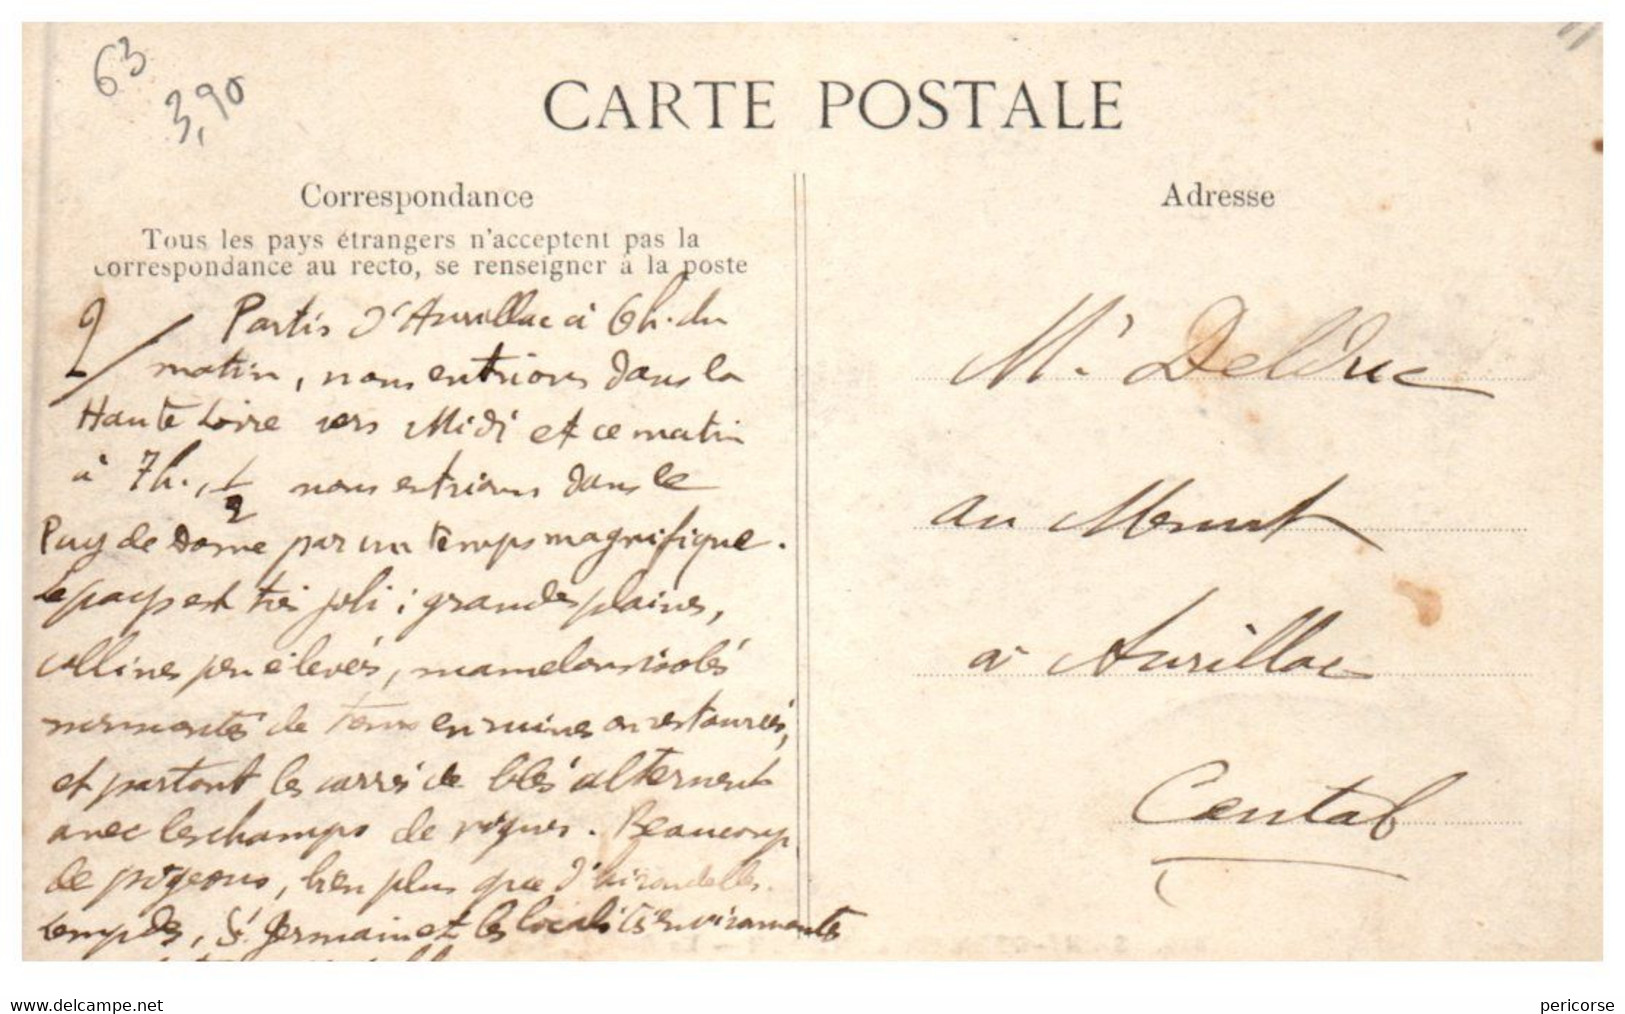 63
3,90
CARTE POSTALE
Correspondance
Tous les pays étrangers n'acceptent pas la
correspondance au recto, se renseigner à la poste
2/ Partis d'Aurillac à 6h. du
matin, nous entrions dans la
Haute Loire vers Midi et ce matin
à 7h. 1/2 nous entrions dans le
Puy de Dome par un temps magnifique.
Le pays est très joli : grandes plaines,
collines peu élevées, mamelons isolés
surmontés de tours en ruines ou restaurées,
et partout les carrés de blés alternent
avec les champs de vignes. Beaucoup
de pigeons, bien plus que d'hirondelles.
Lempdes, St Germain et les localités environnantes
Adresse
Mr Deldruc
au
à Aurillac
Cantal
delcampe.net
pericorse